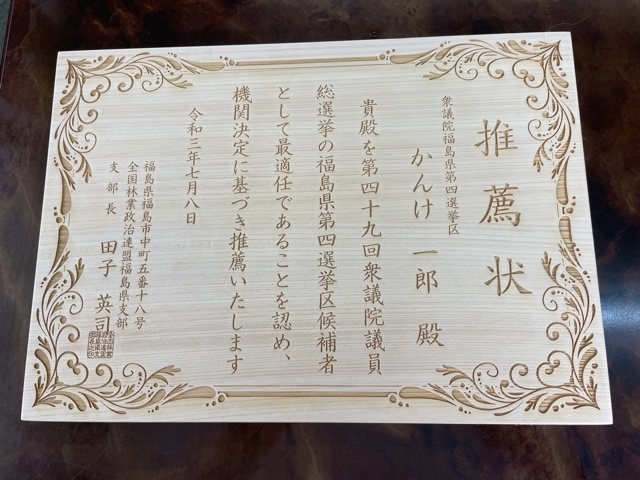 推薦状
衆議院福島県第四選挙区
かんけ 一郎 殿
貴殿を第四十九回衆議院議員
総選挙の福島県第四選挙区候補者
として最適任であることを認め、
機関決定に基づき推薦いたします
令和三年七月八日
福島県福島市中町五番十八号
全国林業政治連盟福島県支部
支部長 田子 英司